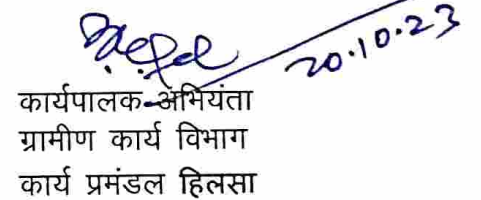 20.10.23
कार्यपालक अभियंता
ग्रामीण कार्य विभाग
कार्य प्रमंडल हिलसा